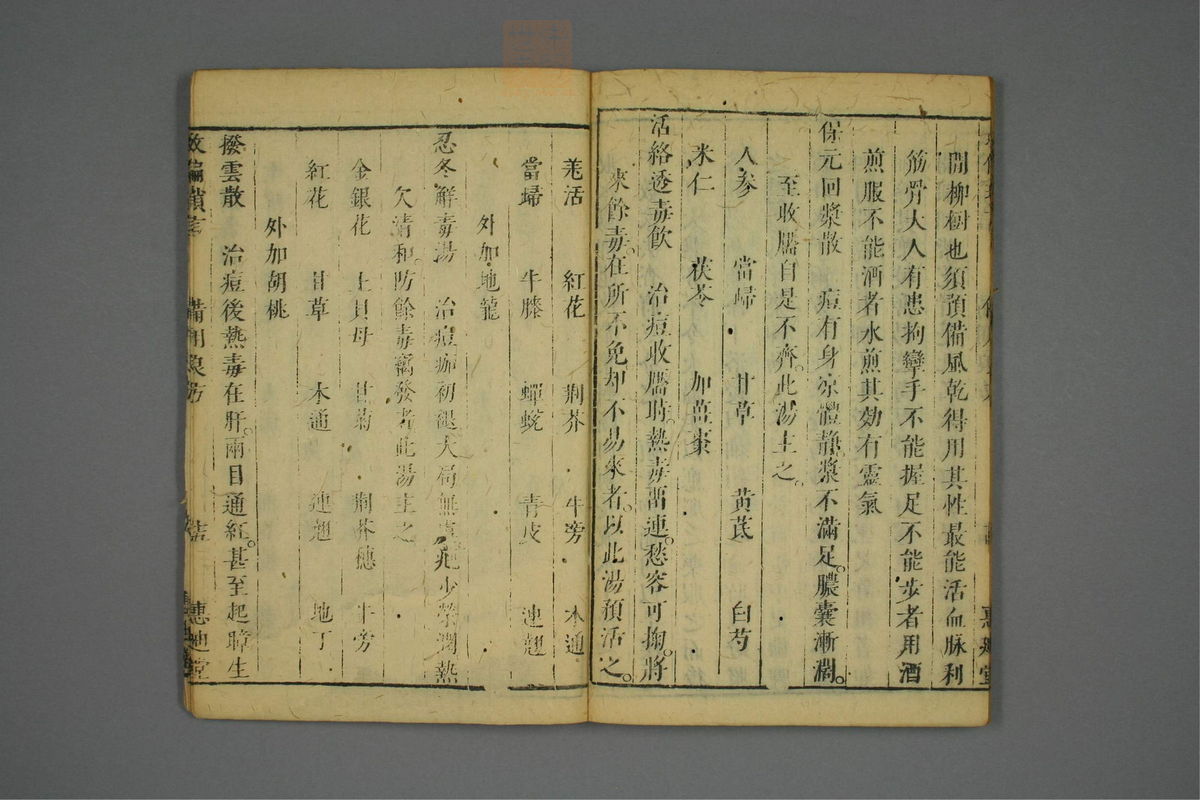 間柳樹也須預備風乾得用其性最能活血脉利
筋骨大人有患拘攣手不能握足不能步者用酒
煎服不能酒者水煎其効有靈氣
保元回漿散 痘有身凉體靜漿不滿足。膿囊漸濶。
至收靨自是不齊。此湯主之。
人參 當歸 甘草 黃芪 白芍
米仁 茯苓 加薑棗
活絡透毒飲 治痘收靨時。熱毒留連。愁容可掬。將
來餘毒。在所不免却不易來者。以此湯預活之。
羌活 紅花 荆芥 牛旁 木通
當歸 牛膝 蟬蛻 青皮 連翹
外加地龍
忍冬解毒湯 治痘痂初褪大局無 少榮潤熱
欠清和防餘毒竊發者此湯主之
金銀花 土貝母 甘菊 荆芥穗 牛旁
紅花 甘草 木通 連翹 地丁
外加胡桃
撥雲散 治痘後熱毒在肝。兩目通紅。甚至起瞕生
救偏瑣言 備用良方 惠迪堂